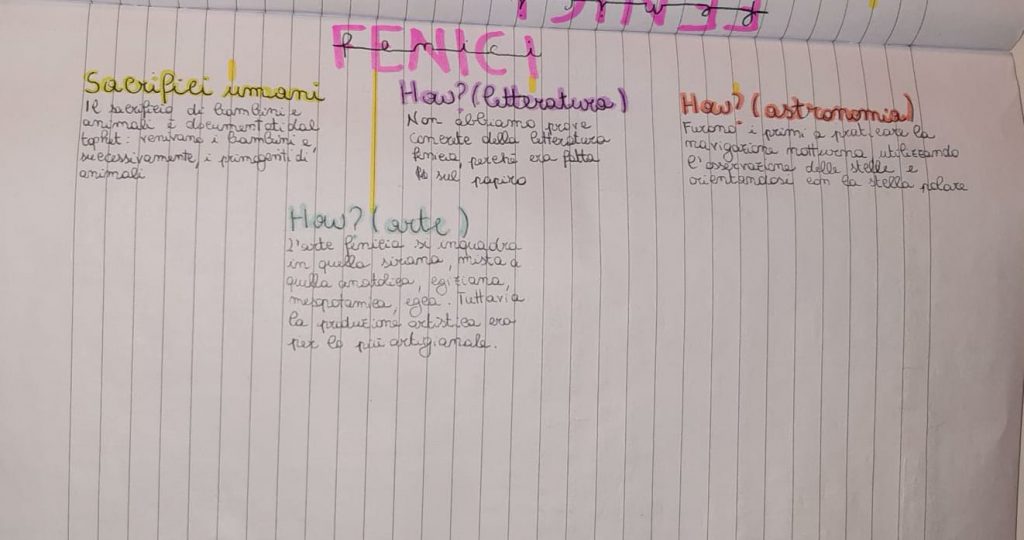 FENICI
Fenici
Sacrifici umani
Il sacrificio di bambini e
animali è documentati dal
tophet: venivano i bambini e,
successivamente, i primogeniti di
animali
How? (letteratura)
Non abbiamo prove
concrete della letteratura
fenicia, perché era fatta
sul papiro
How? (astronomia)
Furono i primi a praticare la
navigazione notturna utilizzando
l'osservazione delle stelle e
orientandosi con la stella polare
How? (arte)
L'arte fenicia si inquadra
in quella siriana, mista a
quella anatolica, egiziana,
mesopotamica, egea. Tuttavia
la produzione artistica era
per lo più artigianale.